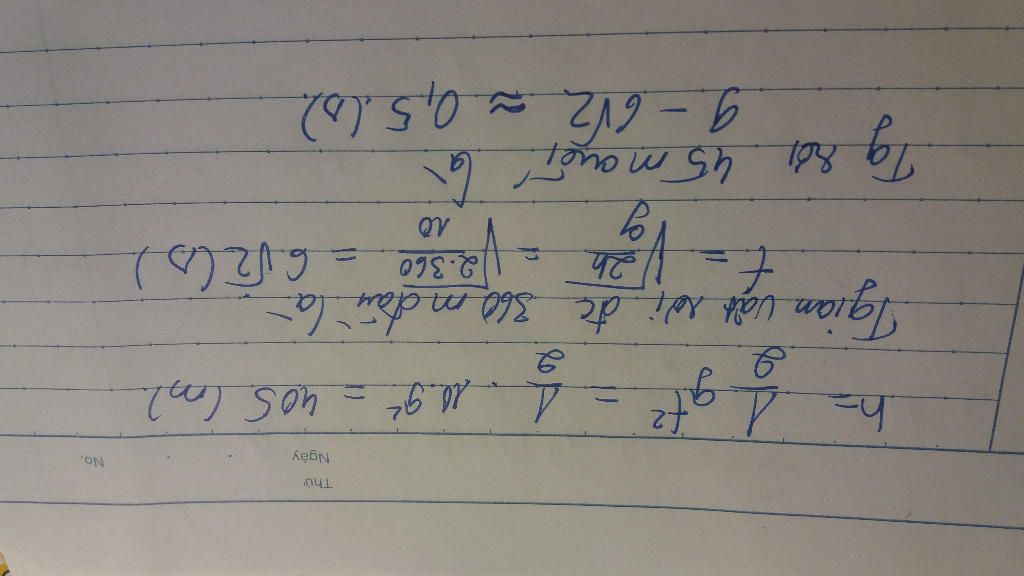 Thứ
Ngày No.
h = 1/2 gt² = 1/2 . 10.9² = 405 (m)
Tgian vật rơi đc 360 m đầu là
t = √(2h/g) = √(2.360/10) = 6√2 (s)
Tg rơi 45 m cuối là
9 - 6√2 ≈ 0,5 (s)